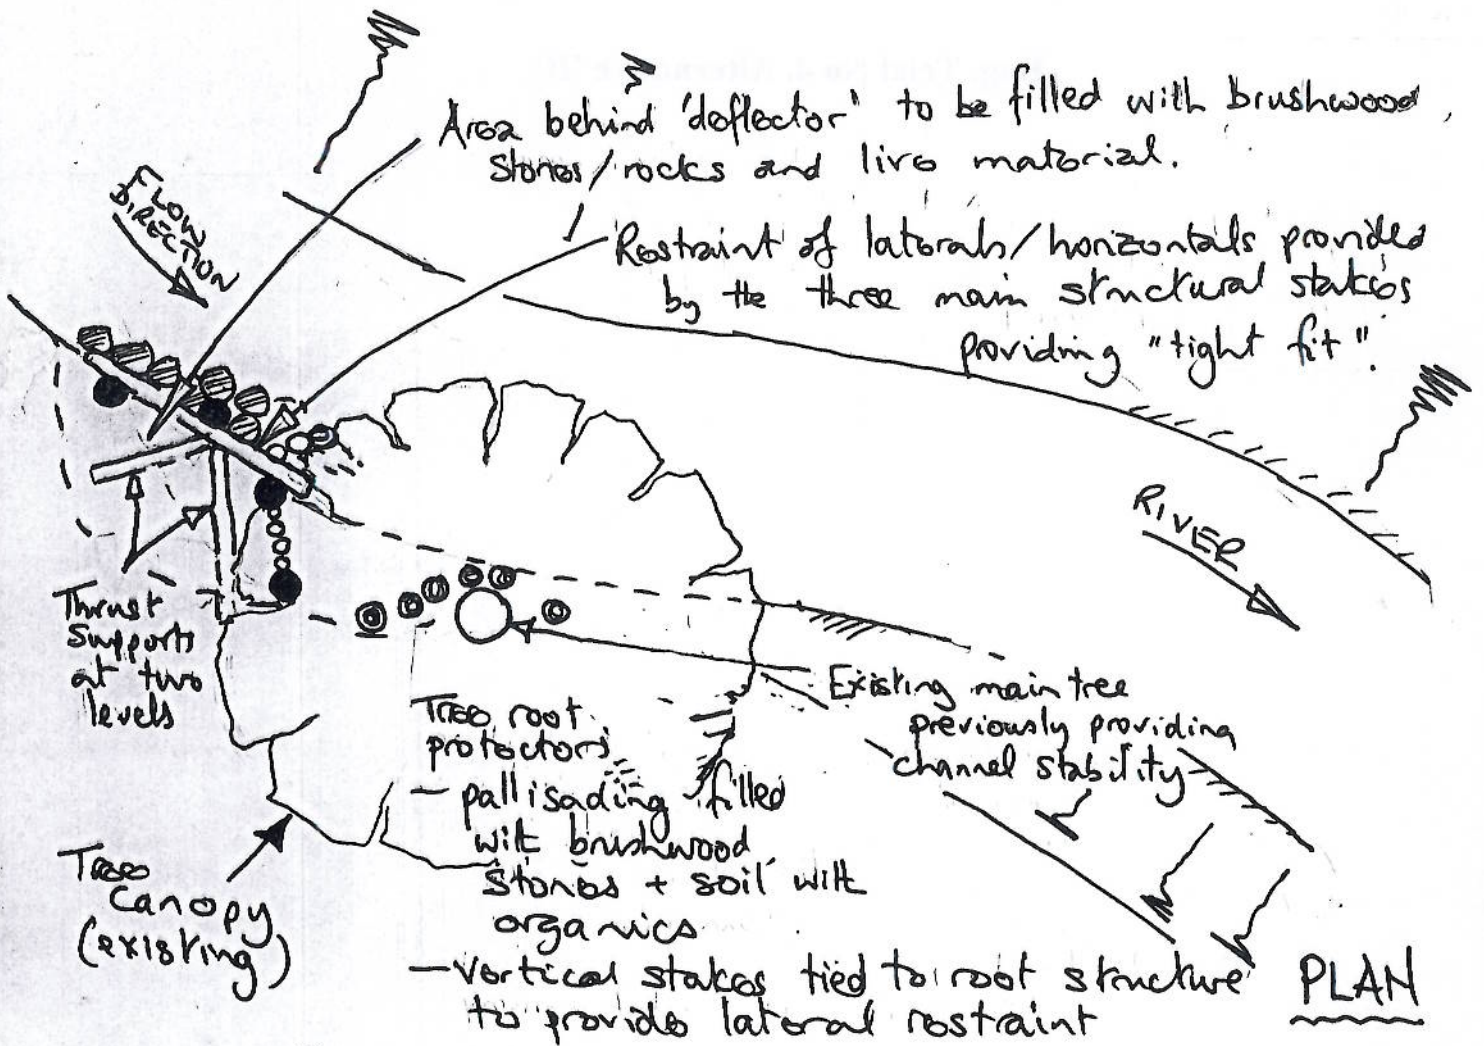 Area behind 'deflector' to be filled with brushwood,
stones/rocks and live material.
FLOW
DIRECTION
Restraint of laterals/horizontals provided
by the three main structural stakes
providing "tight fit".
RIVER
Thrust
supports
at two
levels
Existing main tree
previously providing
channel stability
Tree root
protectors
– pallisading filled
with brushwood
stones + soil with
organics
– Vertical stakes tied to root structure
to provide lateral restraint
Tree
Canopy
(existing)
PLAN